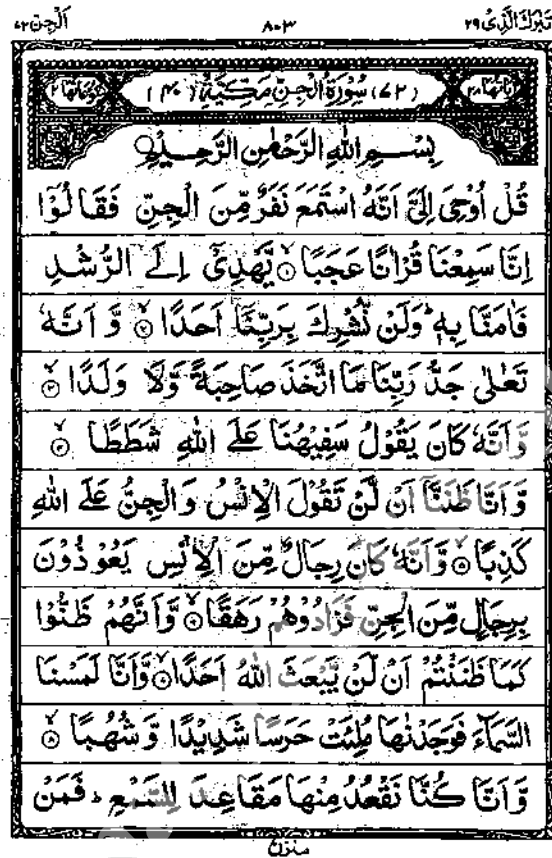 تَبٰرَكَ الَّذِیْ ۲۹ ۸۰۳ اَلْجِنّ ۷۲
اٰیَاتُهَا ۲۸ (۷۲) سُوْرَةُ الْجِنِّ مَكِّيَّةٌ (۴۰) رُكُوْعَاتُهَا ۲
بِسْمِ اللهِ الرَّحْمٰنِ الرَّحِيْمِ
قُلْ اُوْحِیَ اِلَیَّ اَنَّهُ اسْتَمَعَ نَفَرٌ مِّنَ الْجِنِّ فَقَالُوْۤا
اِنَّا سَمِعْنَا قُرْاٰنًا عَجَبًا ۱ یَّهْدِیْۤ اِلَى الرُّشْدِ
فَاٰمَنَّا بِهٖ ؕ وَلَنْ نُّشْرِكَ بِرَبِّنَاۤ اَحَدًا ۲ وَّ اَنَّهٗ
تَعٰلٰى جَدُّ رَبِّنَا مَا اتَّخَذَ صَاحِبَةً وَّلَا وَلَدًا ۳
وَّاَنَّهٗ كَانَ یَقُوْلُ سَفِیْهُنَا عَلَى اللهِ شَطَطًا ۴
وَّاَنَّا ظَنَنَّاۤ اَنْ لَّنْ تَقُوْلَ الْاِنْسُ وَالْجِنُّ عَلَى اللهِ
كَذِبًا ۵ وَّاَنَّهٗ كَانَ رِجَالٌ مِّنَ الْاِنْسِ یَعُوْذُوْنَ
بِرِجَالٍ مِّنَ الْجِنِّ فَزَادُوْهُمْ رَهَقًا ۶ وَّاَنَّهُمْ ظَنُّوْا
كَمَا ظَنَنْتُمْ اَنْ لَّنْ یَّبْعَثَ اللهُ اَحَدًا ۷ وَّاَنَّا لَمَسْنَا
السَّمَآءَ فَوَجَدْنٰهَا مُلِئَتْ حَرَسًا شَدِیْدًا وَّشُهُبًا ۸
وَّاَنَّا كُنَّا نَقْعُدُ مِنْهَا مَقَاعِدَ لِلسَّمْعِ ؕ فَمَنْ
منزل